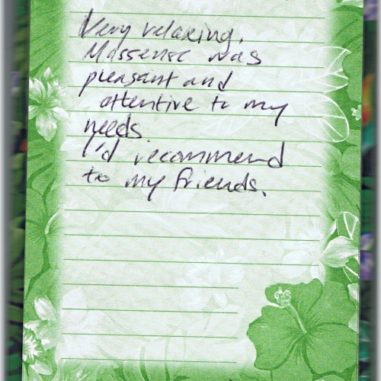 Very relaxing.
Massense was
pleasant and
attentive to my
needs
I'd recommend
to my friends.